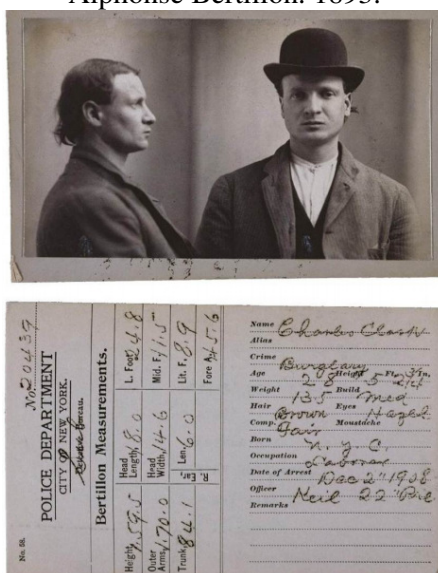 Alphonse Bertillon. 1893.
No. 20439
POLICE DEPARTMENT
CITY OF NEW YORK.
Detective Bureau.
Bertillon Measurements.
Height, 1.59.5
Outer Arms, 1.70.0
Trunk, 84.1
Head Length, 18.0
Head Width, 14.6
R. Ear Len. 6.0
L. Foot, 24.8
Mid. F. 11.5
Lit. F. 8.9
Fore A. 45.6
No. 38.
Name Charles Clark
Alias
Crime Burglary
Age 28 Height 5 Ft. 2 3/4 In.
Weight 135 Build Med
Hair Brown Eyes Hazel
Comp. Fair Moustache
Born N.Y.C.
Occupation Laborer
Date of Arrest Dec 2" 1908
Officer Neil 22"
Remarks